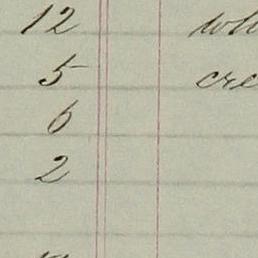 12
5 cre
6
2